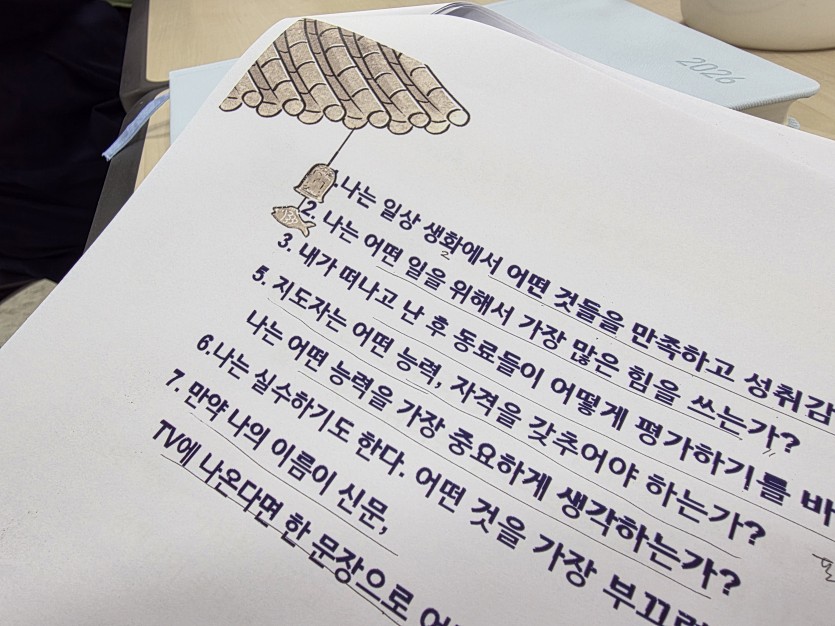 2026
.나는 일상 생활에서 어떤 것들을 만족하고 성취감
2. 나는 어떤 일을 위해서 가장 많은 힘을 쓰는가?
3. 내가 떠나고 난 후 동료들이 어떻게 평가하기를 바
5. 지도자는 어떤 능력, 자격을 갖추어야 하는가?
나는 어떤 능력을 가장 중요하게 생각하는가?
6.나는 실수하기도 한다. 어떤 것을 가장 부끄
7. 만약 나의 이름이 신문,
TV에 나온다면 한 문장으로